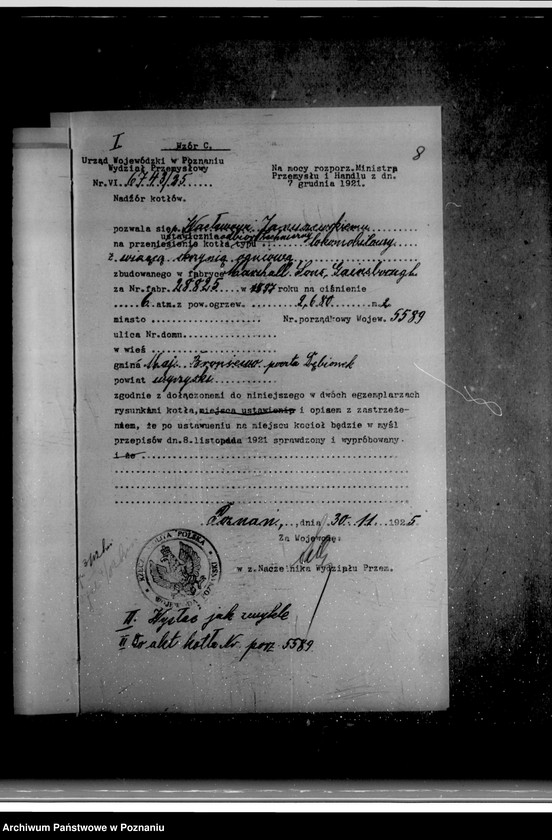 I
Wzór C.
8
Urząd Wojewódzki w Poznaniu
Wydział Przemysłowy
Nr.VI. 6743/25
Nadzór kotłów.
Na mocy rozporz.Ministra
Przemysłu i Handlu z dn.
7 grudnia 1921.
pozwala się p. Wacławowi Januszewskiemu
na przeniesienie kotła, typu lokomobilowy
z wiązą skrzynią ogniową
zbudowanego w fabryce Marshall Sons, Gainsborough
za Nr.fabr. 28825 w 1897 roku na ciśnienie
6 atm.z pow.ogrzew. 2,680 n.
miasto Nr.porządkowy Mojew. 5589
ulica Nr.domu
w wieś
gmina Maj. Broniewo poczta Dębionek
powiat wyrzyski
zgodnie z dołączonemi do niniejszego w dwóch egzemplarzach
rysunkami kotła, miejsca ustawienia i opisem z zastrzeże-
niem, że po ustawieniu na miejscu kocioł będzie w myśl
przepisów dn.8.listopada 1921 sprawdzony i wypróbowany.
i że
Poznań, dnia 30.11. 1925.
Za Wojewodę:
w z.Naczelnika Wydziału Przem.
II. Wysłać jak zwykle
II Do akt kotła Nr. porz 5589
Archiwum Państwowe w Poznaniu